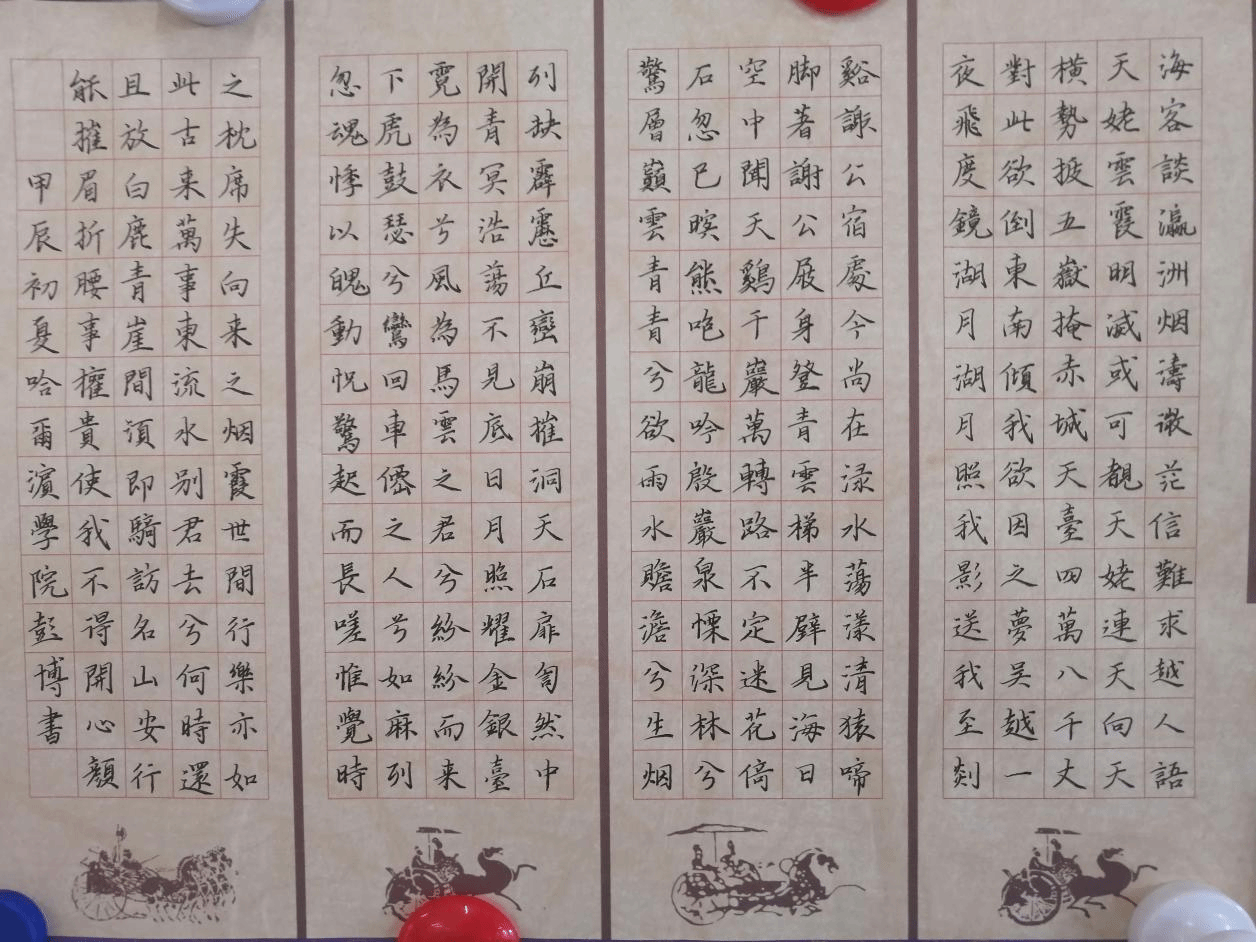 海客談瀛洲烟濤微茫信難求越人語
天姥雲霞明滅或可覩天姥連天向天
橫勢拔五嶽掩赤城天臺四萬八千丈
對此欲倒東南傾我欲因之夢吳越一
夜飛度鏡湖月湖月照我影送我至剡
谿謝公宿處今尚在渌水蕩漾清猿啼
脚著謝公屐身登青雲梯半壁見海日
空中聞天鷄千巖萬轉路不定迷花倚
石忽已暝熊咆龍吟殷巖泉慄深林兮
驚層巔雲青青兮欲雨水贍澹兮生烟
列缺霹靂丘巒崩摧洞天石扉訇然中
開青冥浩蕩不見底日月照耀金銀臺
霓為衣兮風為馬雲之君兮紛紛而来
下虎鼓瑟兮鸞回車僊之人兮如麻列
忽魂悸以魄動怳驚起而長嗟惟覺時
之枕席失向来之烟霞世間行樂亦如
此古来萬事東流水别君去兮何時還
且放白鹿青崖間須即騎訪名山安行
能摧眉折腰事權貴使我不得開心顏
甲辰初夏哈爾濱學院彭博書